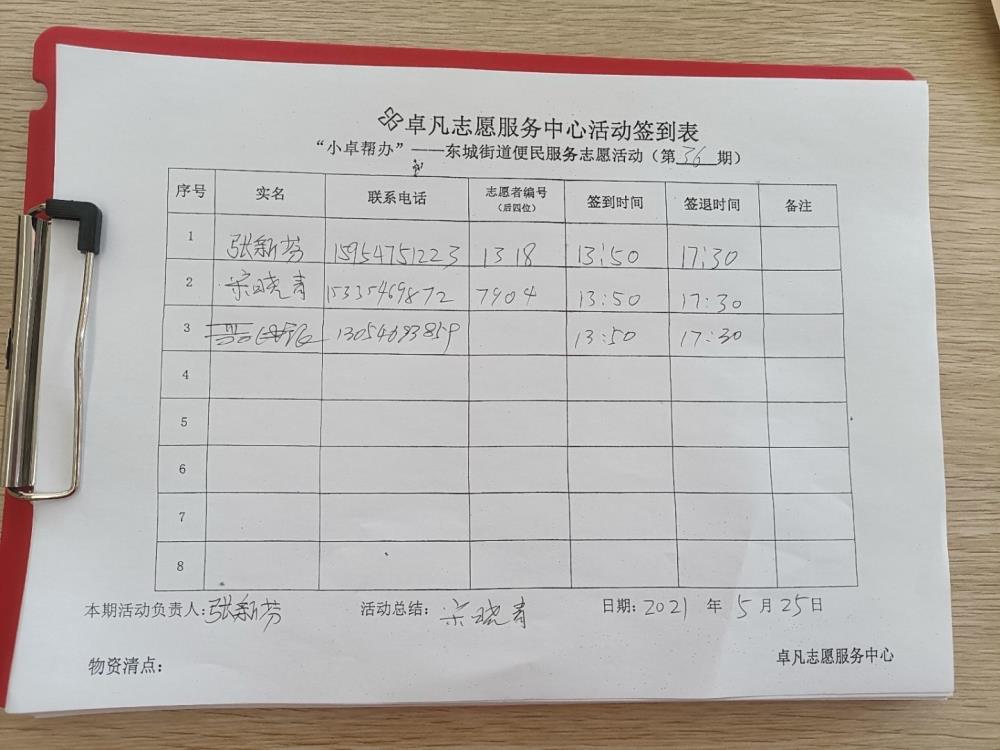 卓凡志愿服务中心活动签到表
“小卓帮办”——东城街道便民服务志愿活动（第36期）
序号 实名 联系电话 志愿者编号（后四位） 签到时间 签退时间 备注
1 张新芬 15954751223 1318 13:50 17:30
2 宋晓青 15335469872 7904 13:50 17:30
3 13054693859 13:50 17:30
4
5
6
7
8
本期活动负责人:张新芬 活动总结: 宋晓青 日期: 2021 年 5 月 25 日
物资清点: 卓凡志愿服务中心